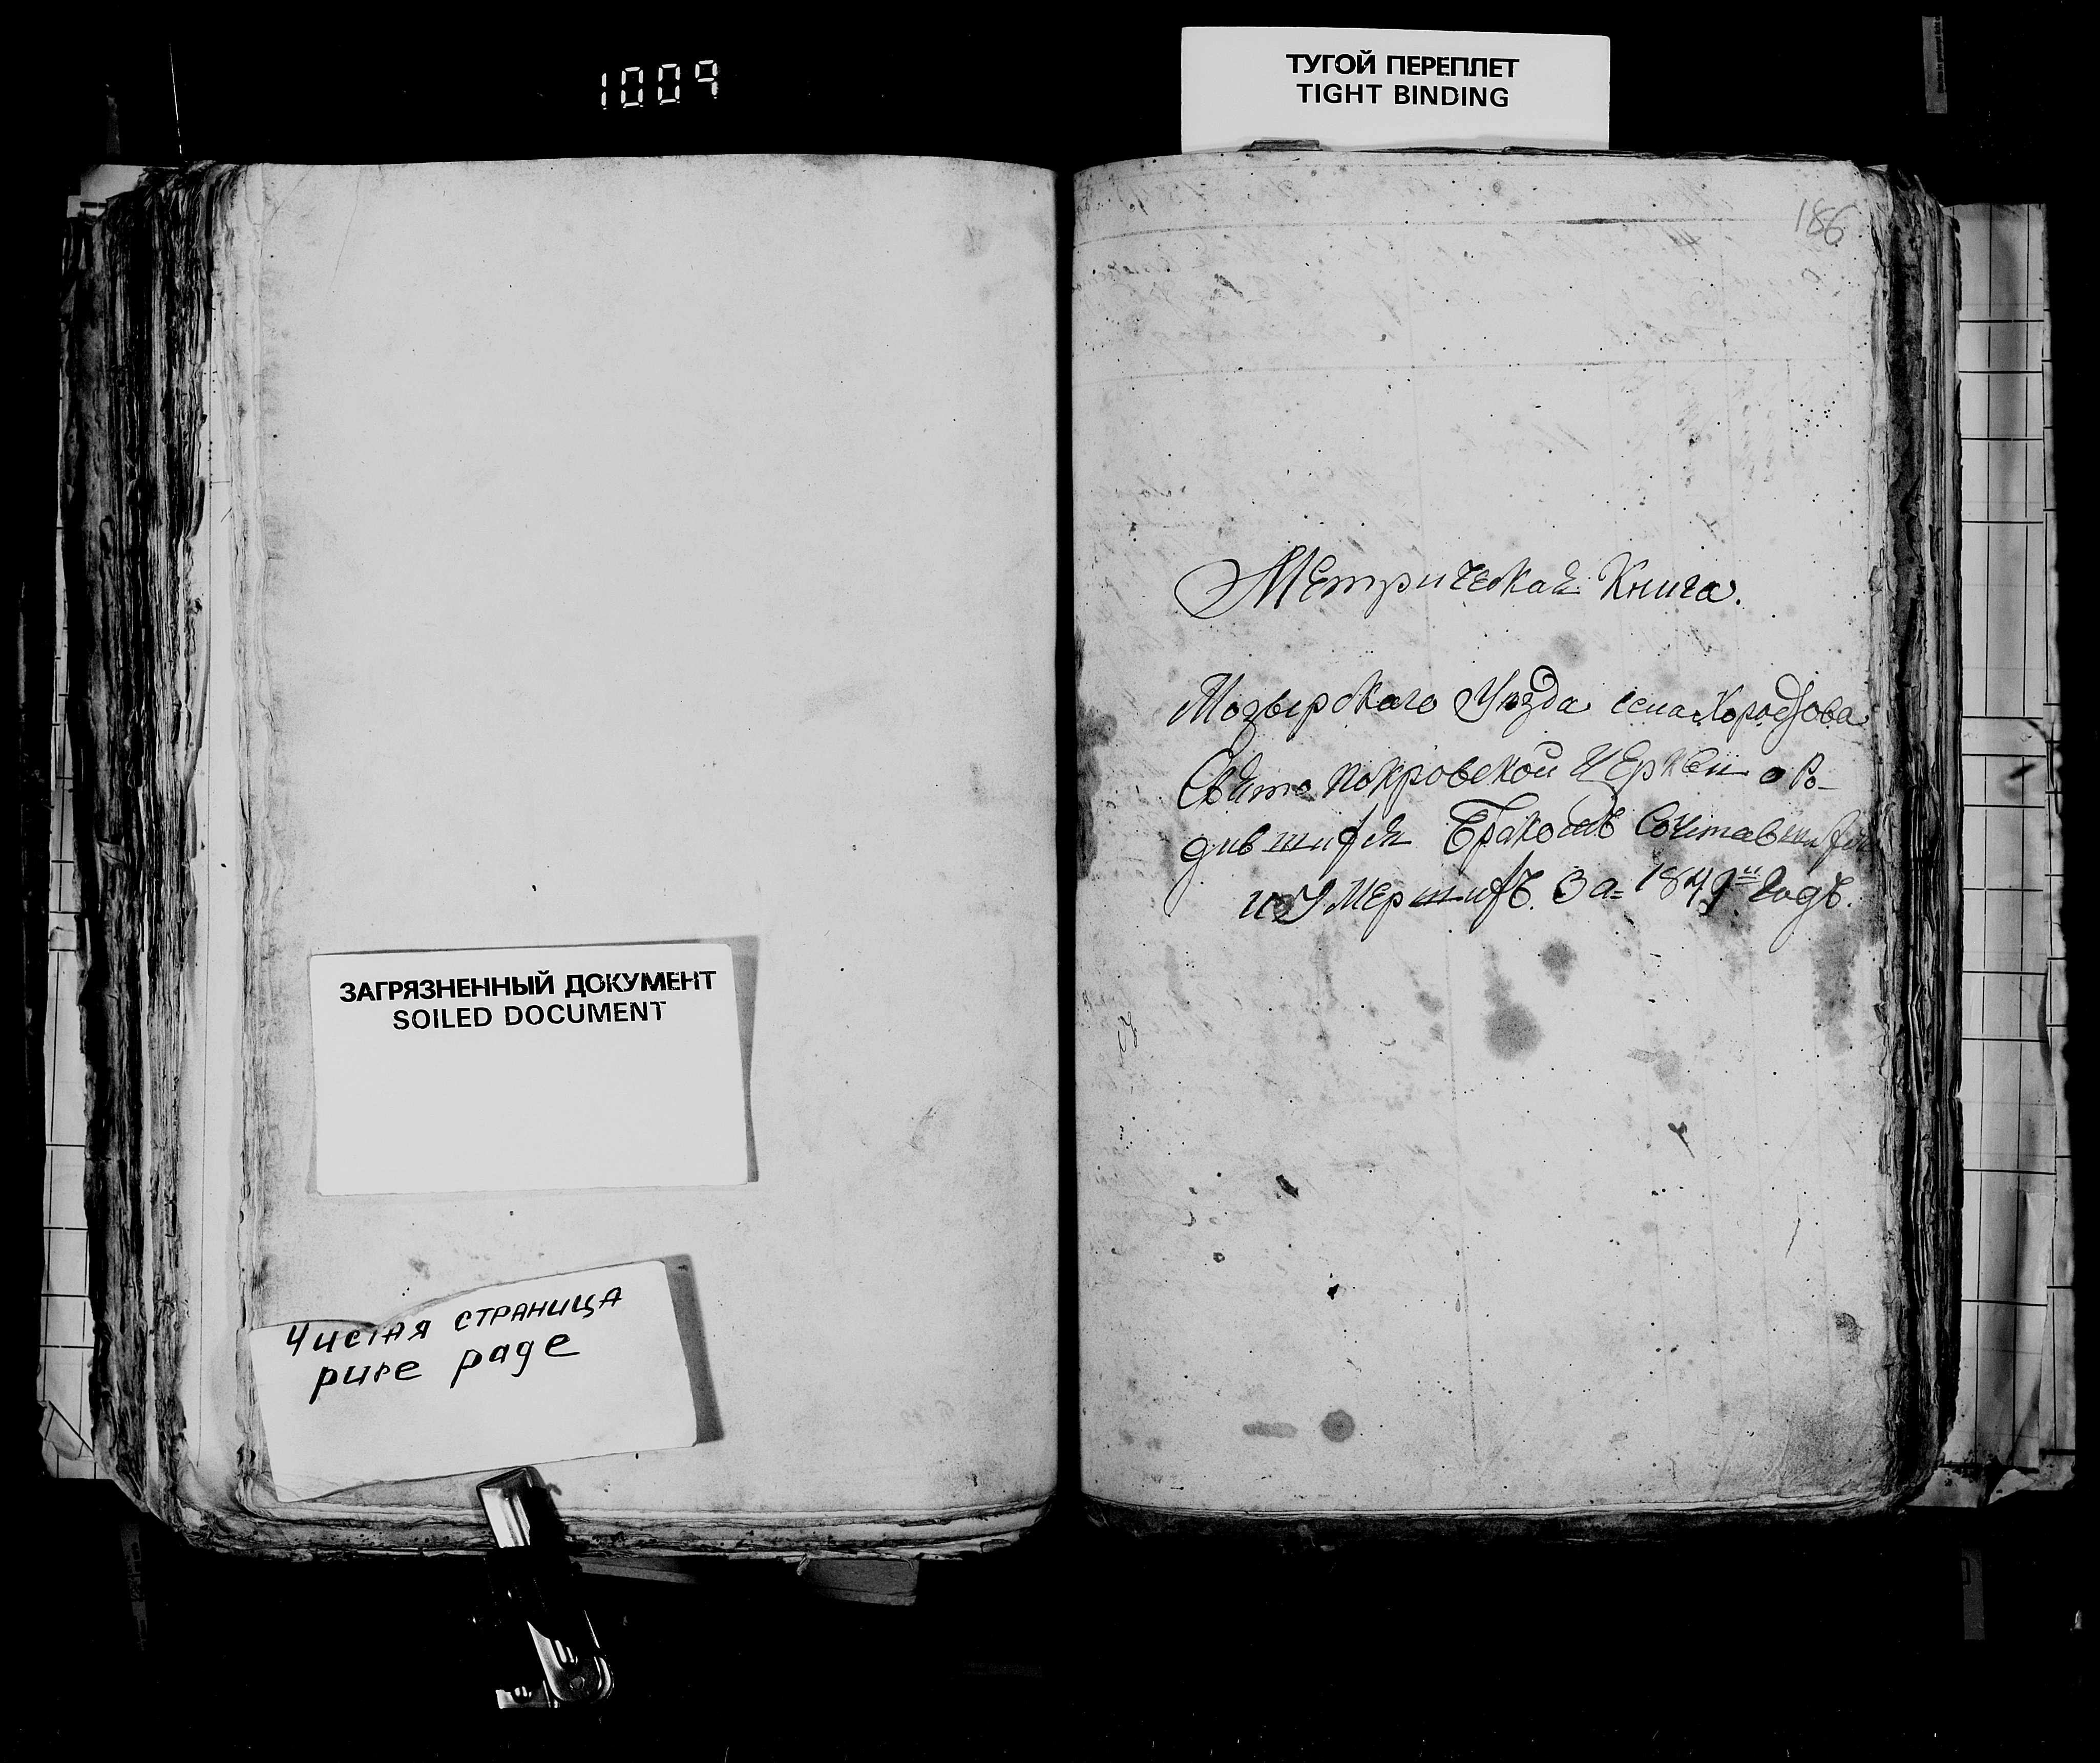 1009
ТУГОЙ ПЕРЕПЛЕТ
TIGHT BINDING
ЗАГРЯЗНЕННЫЙ ДОКУМЕНТ
SOILED DOCUMENT
Чистая страница
pure page
186
Метрическая Книга.
Мозырскаго Уѣзда села
Свято Покровской Церкви о Ро-
дившихся Бракомъ Сочетавшихся
и Умершихъ. За 1849й Годъ.